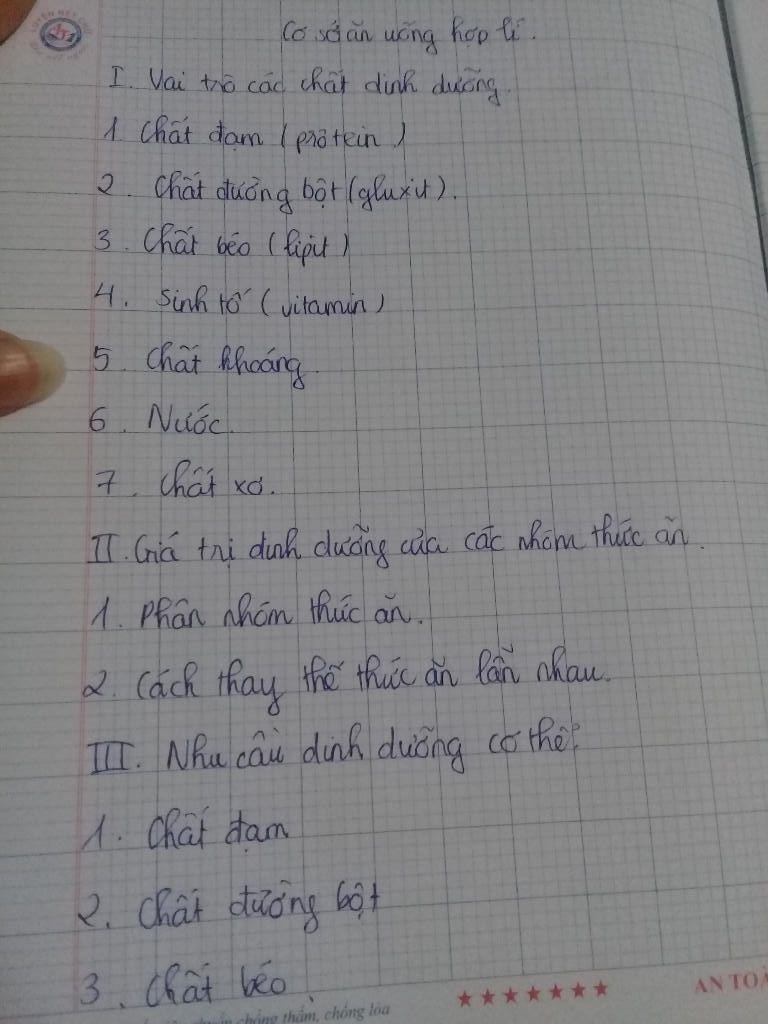 Cơ sở ăn uống hợp lí.
I. Vai trò các chất dinh dưỡng.
1 Chất đạm (prôtein)
2. Chất đường bột (gluxit).
3. Chất béo (lipit)
4. Sinh tố (vitamin)
5. Chất khoáng
6. Nước.
7. Chất xơ.
II. Giá trị dinh dưỡng của các nhóm thức ăn.
1. Phân nhóm thức ăn.
2. Cách thay thế thức ăn lẫn nhau.
III. Nhu cầu dinh dưỡng cơ thể.
1. Chất đạm
2. Chất đường bột
3. Chất béo.
chống thấm, chống lóa
★★★★★★★ AN TOÀ